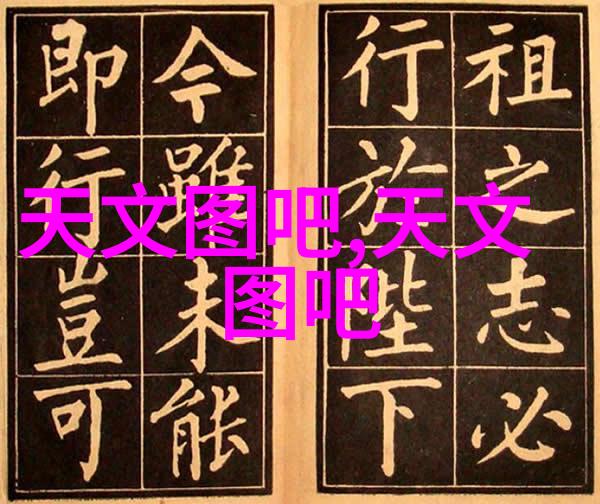 祖之志必
行於陛下
今雖未能
即行豈可
天文图吧,天文
图吧